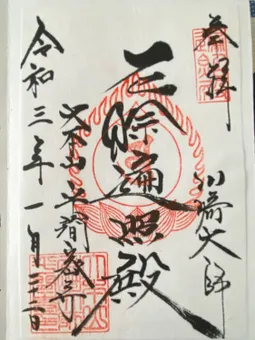 奉拝
川崎大師
厄除遍照殿
大本山平間寺
令和三年一月日